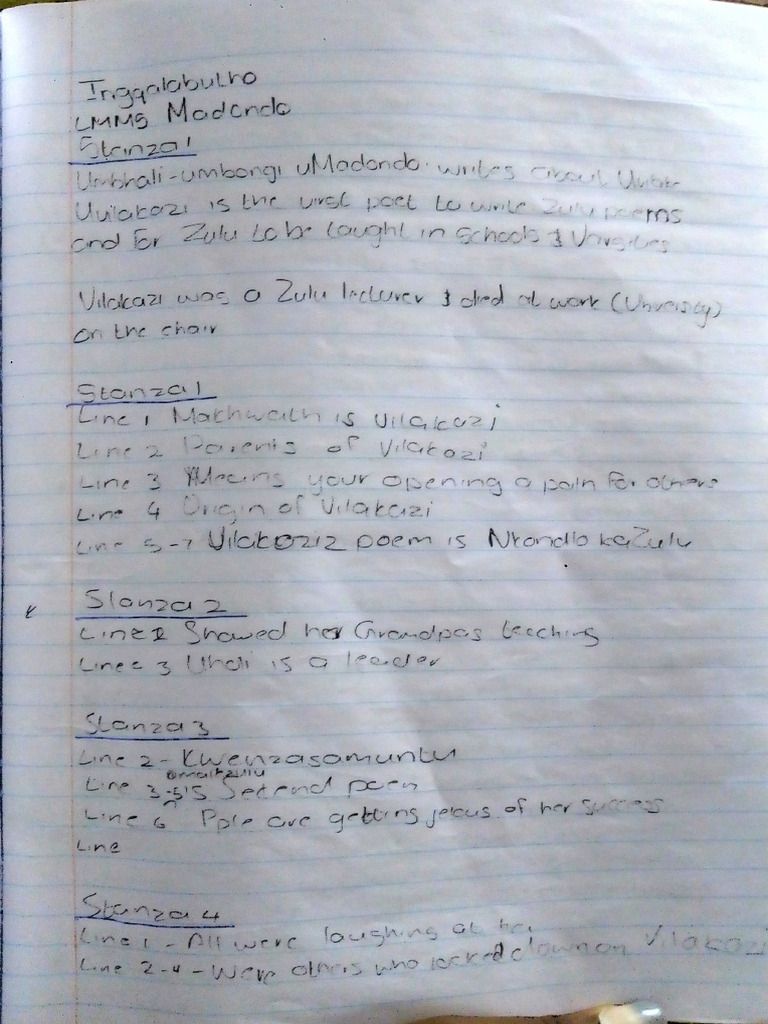 Ingqalabutho
LMMS Madondo
Stanza 1
Umbhali-umbongi uMadondo. writes about
Uvilakazi is the virst poet to write Zulu poems
and for Zulu to be taught in schools &
Vilakazi was a Zulu lecturer & died at work (University)
on the chair
Stanza 1
Line 1 is Vilakazi
Line 2 Parents of Vilakazi
Line 3 Means your opening a path for others
Line 4 Origin of Vilakazi
Line 5-7 Vilakaziz poem is Nkondlo kaZulu
Stanza 2
Line 2 Showed her Grandpas teaching
Line 3 is a leader
Stanza 3
Line 2 - Kwenzasamuntu
Line 3-5 Second poem
Line 6 Pple are getting jelous of her success
Line
Stanza 4
Line 1 - All were laughing at her
Line 2-4 - Were others who looked down on Vilakazi